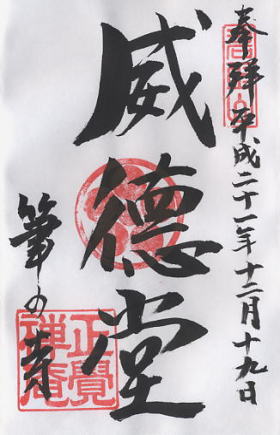 奉拝 平成二十一年十二月十九日
威徳堂
筆の寺
正覺
禅庵